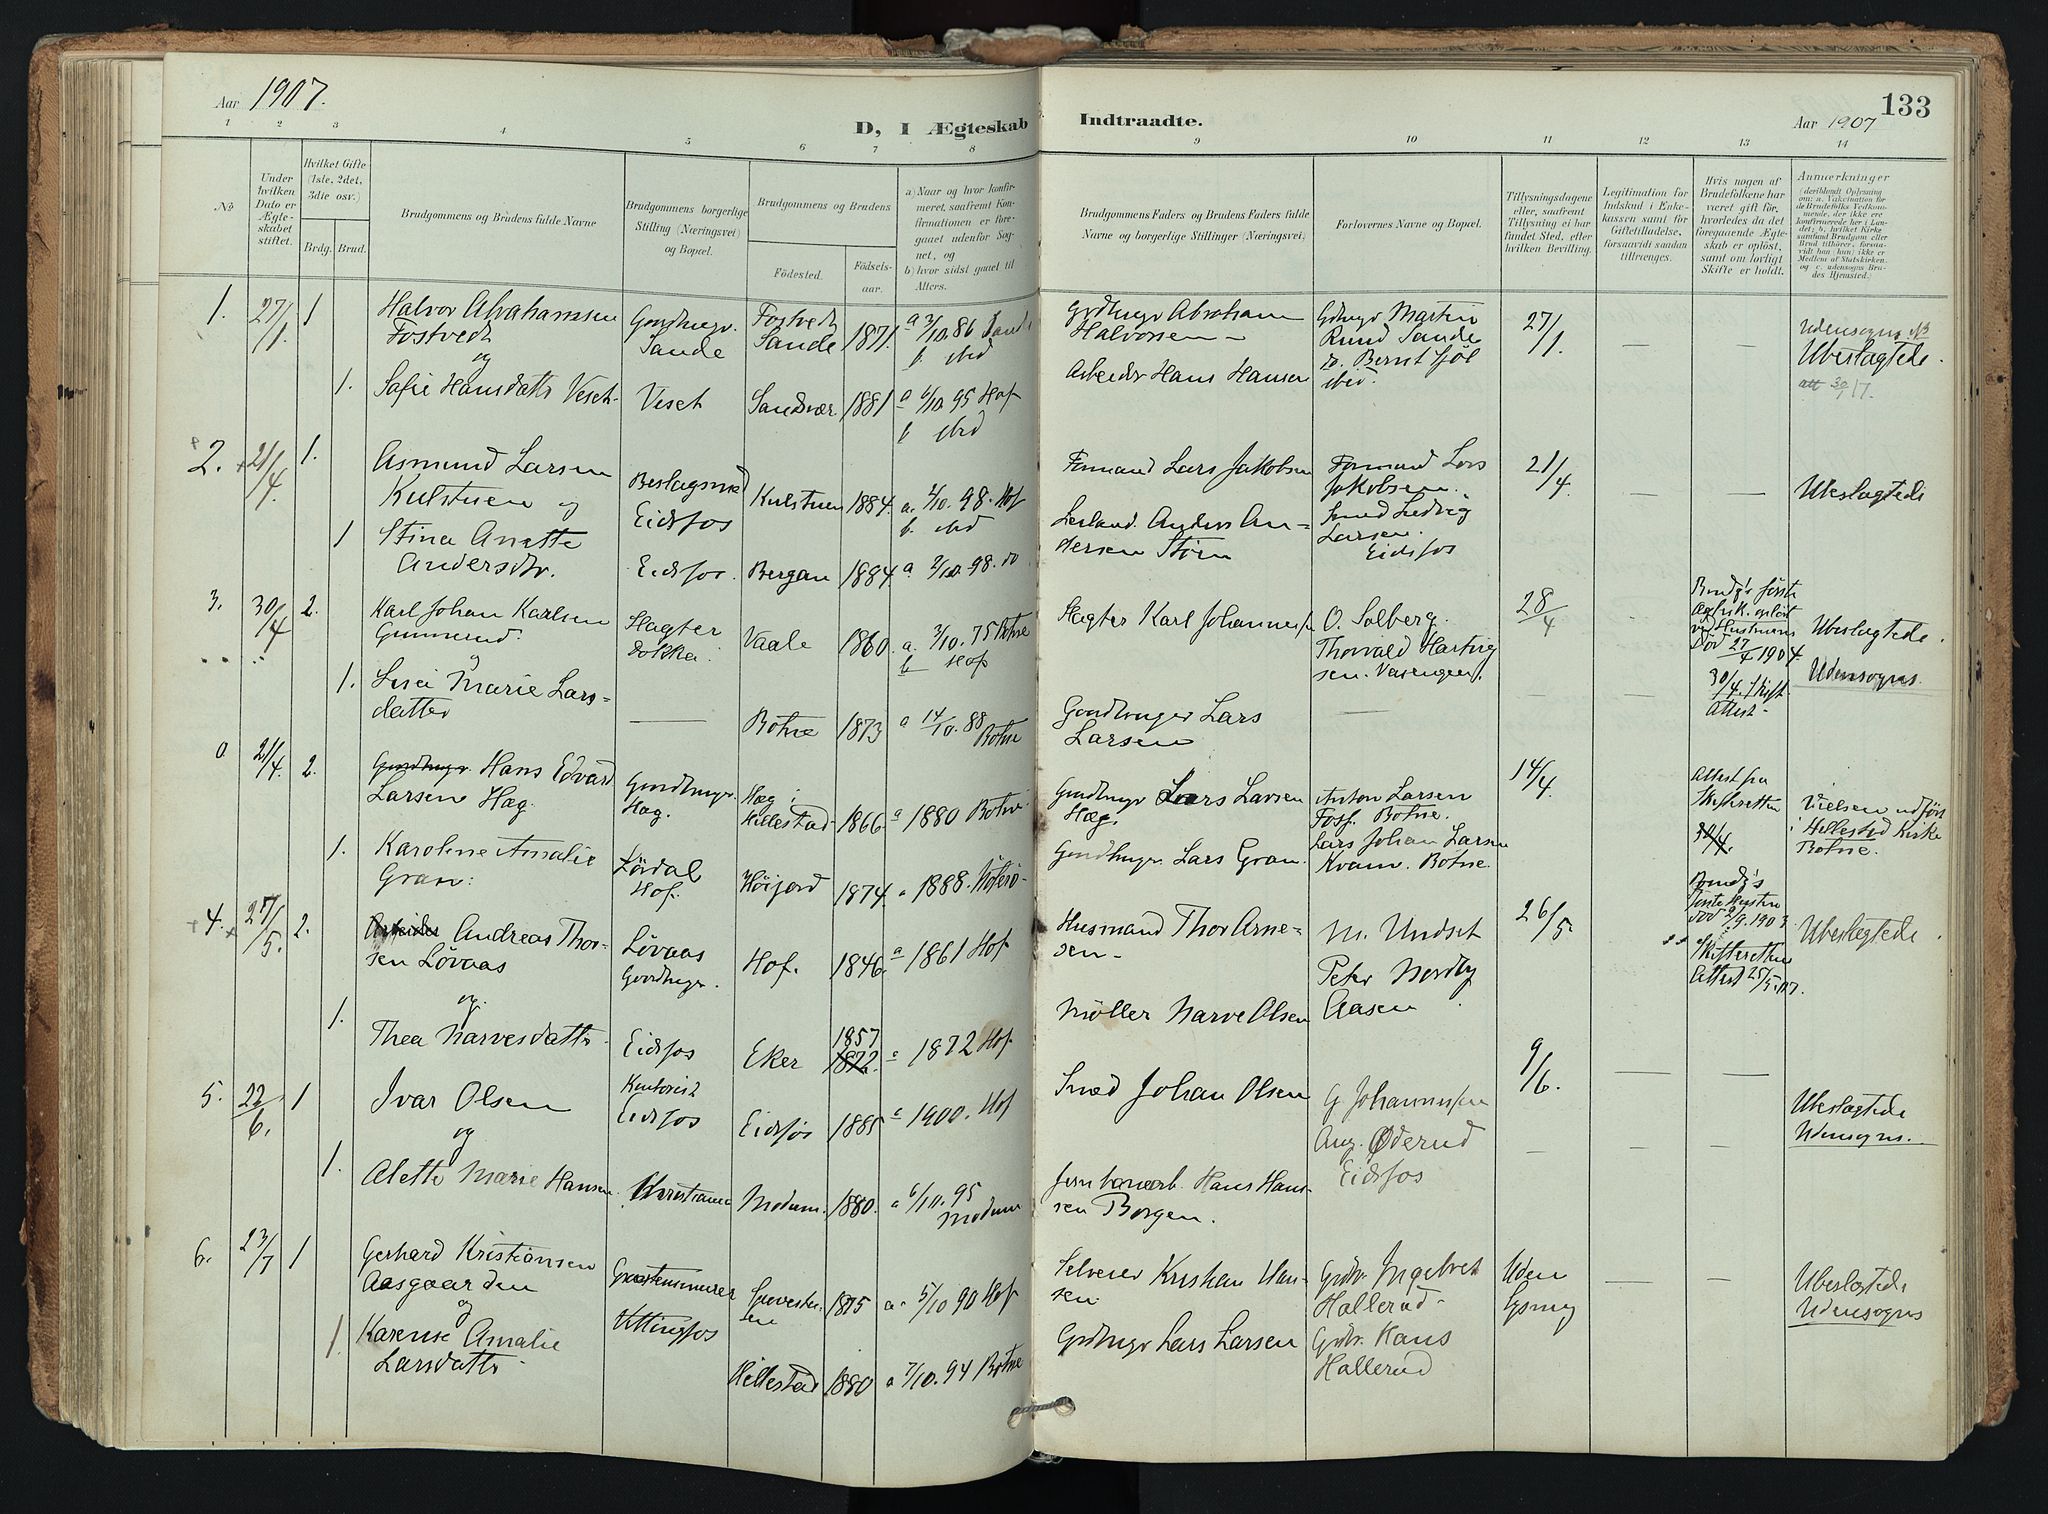 Aar 1907.
D, I Ægteskab
Indtraadte.
Aar 1907
133
1 2 3 4 5 6 7 8 9 10 11 12 13 14
No
Under hvilken Dato er Ægteskabet stiftet.
Hvilket Gifte (1ste, 2det, 3die osv.)
Brdg. Brud.
Brudgommens og Brudens fulde Navne
Brudgommens borgerlige Stilling (Næringsvei) og Bopæl.
Brudgommens og Brudens
Födested.
Födselsaar.
a) Naar og hvor konfirmeret, saafremt Konfirmationen er foregaaet udenfor Sognet, og
b) hvor sidst gaaet til Alters.
Brudgommens Faders og Brudens Faders fulde Navne og borgerlige Stillinger (Næringsvei)
Forlovernes Navne og Bopæl.
Tillysningsdagene eller, saafremt Tillysning ei har fundet Sted, efter hvilken Bevilling.
Legitimation for Indskud i Enkekassen samt for Giftetilladelse, forsaavidt saadan tiltrænges.
Hvis nogen af Brudefolkene har været gift för, hvorledes da det foregaaende Ægteskab er oplöst, samt om lovligt Skifte er holdt.
Anmærkninger
(deriblandt Oplysning om: a. Vakcination for de Brudefolks Vedkommende, der ikke ere konfirmerede her i Landet; b. hvilket Kirkesamfund Brudgom eller Brud tilhörer, forsaavidt han (hun) ikke er Medlem af Statskirken, og c. udensogns Brudes Hjemsted.)
1. 27/1 1 Halvor Abrahamsen Gaardbruger Fostvedt 1871 a 3/10 86 Sande
Fostvedt Sande Sande b. ibid
og
1. Safie Hansdatter Veset Veset Sandsvær 1881 a 6/10 95 Hof
b ibid
Grdbrugr Abraham Halvorsen
Arbeider Hans Hansen
Gdbrgr Martin Rund Sande
do. Bernt Fjøl ibid.
27/1 — —
Udensogns. NB
Ubeslægtede.
att 30/1 7.
2. 21/4 1. Asmund Larsen Beslagsmed Kulstuen 1884. a. 2/10. 98. Hof
Kulstuen og Eidsfos b. ibid
1 Stina Anette Andersdtr. Eidsfos. Bergan 1884 a. 2/10. 98. do
Formand Lars Jakobsen
Anders Andersen
Formand Lars Jakobsen.
Smed Ludvig Larsen.
Eidsfos
21/4. — — Ubeslægtede
3. 30/4 2. Karl Johan Karlsen Slagter Vaale 1860. a. 3/10. 75 Botne
Gunnerud. b Hof
og
1. Lisa Marie Larsdatter — Botne 1873 a 14/10. 88 Botne
Slagter Karl Johannessen
Gaardbruger Lars Larsen
O. Solberg.
Thorvald Hartvigsen. Vasengen.
28/4
Brudg's første Ægtesk. opløst ved Hustruens Død 27/4 1904.
30/4. Skift Attest
Ubeslægtede.
Udensogns.
0 21/4. 2. Gaardbruger Hans Edvard Gaardbruger. Hæg i 1866. a 1880 Botne
Larsen Hæg. Hæg. Hillestad
1. Karoline Amalie Gran. Lørdal Hof. Høijord 1874 a 1888.
Gaardbruger Lars Larsen Hæg.
Gaardbruger Lars Gran.
Anton Larsen Foss. Botne.
Lars Johan Larsen Kvam. Botne.
14/4.
Attest fra Skifteretten 30/4.
Vielsen udført i Hillestad Kirke Botne.
4. 27/5. 2. Arbeider Andreas Thorsen Løvaas Hof. 1846. a 1861 Hof
Løvaas Gaardbruger.
og
1. Thea Narvesdatter. Eidsfos Eker 1857 1872. a 1872 Hof
Husmand Thor Arnesen
Møller Narve Olsen
M. Undset
Peter Nordby Aasen
26/5.
Brudg's første Hustru død 2/9. 1903.
Skifterettens Attest 25/5. 07.
Ubeslægtede.
5. 22/6. 1 Ivar Olsen Kontorist Eidsfos Eidsfos 1885 a 1900. Hof
og
1. Alette Marie Hansen. Kristiania Modum. 1880. a 6/10. 95 Modum
Smed Johan Olsen
Jernbanearb. Hans Hansen Borgen.
G Johannessen
Aug. Øderud
Eidsfos
9/6. — —
Ubeslægtede
Udensogns.
6. 23/7 1 Gerhard Kristiansen 1875 a. 5/10 90 Hof
Aasgaarden Vittingfos
og
1. Karense Amalie Larsdatter Hillestad. 1880 a 7/10. 94 Botne
Selveier Kristian Hansen
Grdbrugr Lars Larsen
Grdbr. Ingebret Hallerud
Grdbr. Hans Hallerud
Uden lysning — —
Ubeslægtede
Udensogns